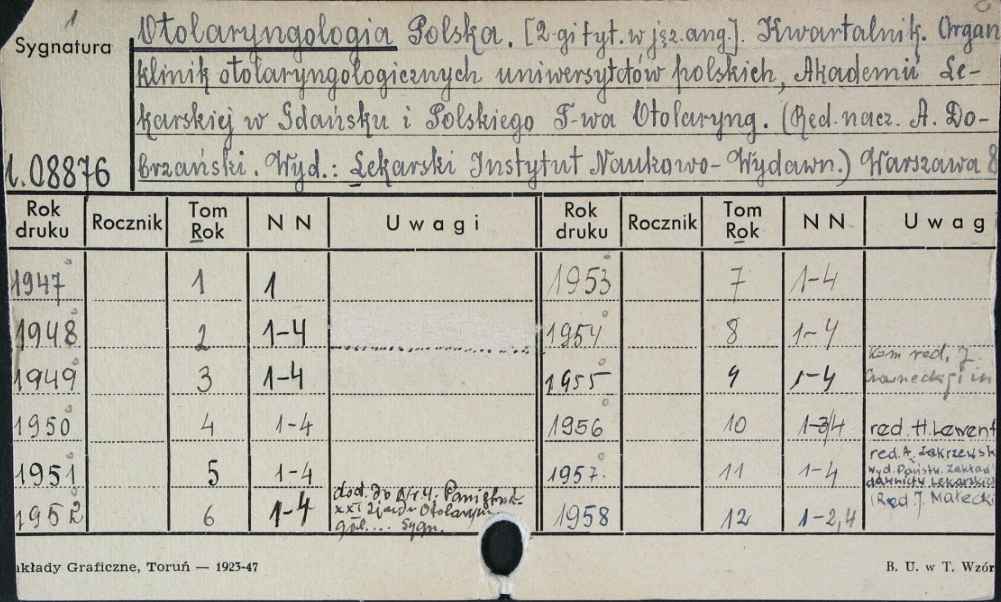 1
Sygnatura
Otolaryngologia Polska. [2-gi tyt. w jęz. ang.]. Kwartalnik. Organ
klinik otolaryngologicznych uniwersytetów polskich, Akademii Le-
karskiej w Gdańsku i Polskiego T-wa Otolaryng. (Red. nacz. A. Do-
brzański. Wyd.: Lekarski Instytut Naukowo-Wydawn.) Warszawa 8
1.08876
Rok druku Rocznik Tom Rok N N Uwagi Rok druku Rocznik Tom Rok N N Uwag
1947 1 1 1953 7 1-4
1948 2 1-4 1954 8 1-4
1949 3 1-4 1955 9 1-4 red. J.
1950 4 1-4 1956 10 1-3/4 red. H. Lewent
1951 5 1-4 1957. 11 1-4 red. A. Zakrzewsk
Wyd. Państw. Zakład
Lekarskich
1952 6 1-4 dod. do Nr. 4. Pamiętnik
XXI Zjazdu Otolaryn.
Sygn.
1958 12 1-2,4 (Red J. Małecki
akłady Graficzne, Toruń — 1923-47 B. U. w T. Wzór